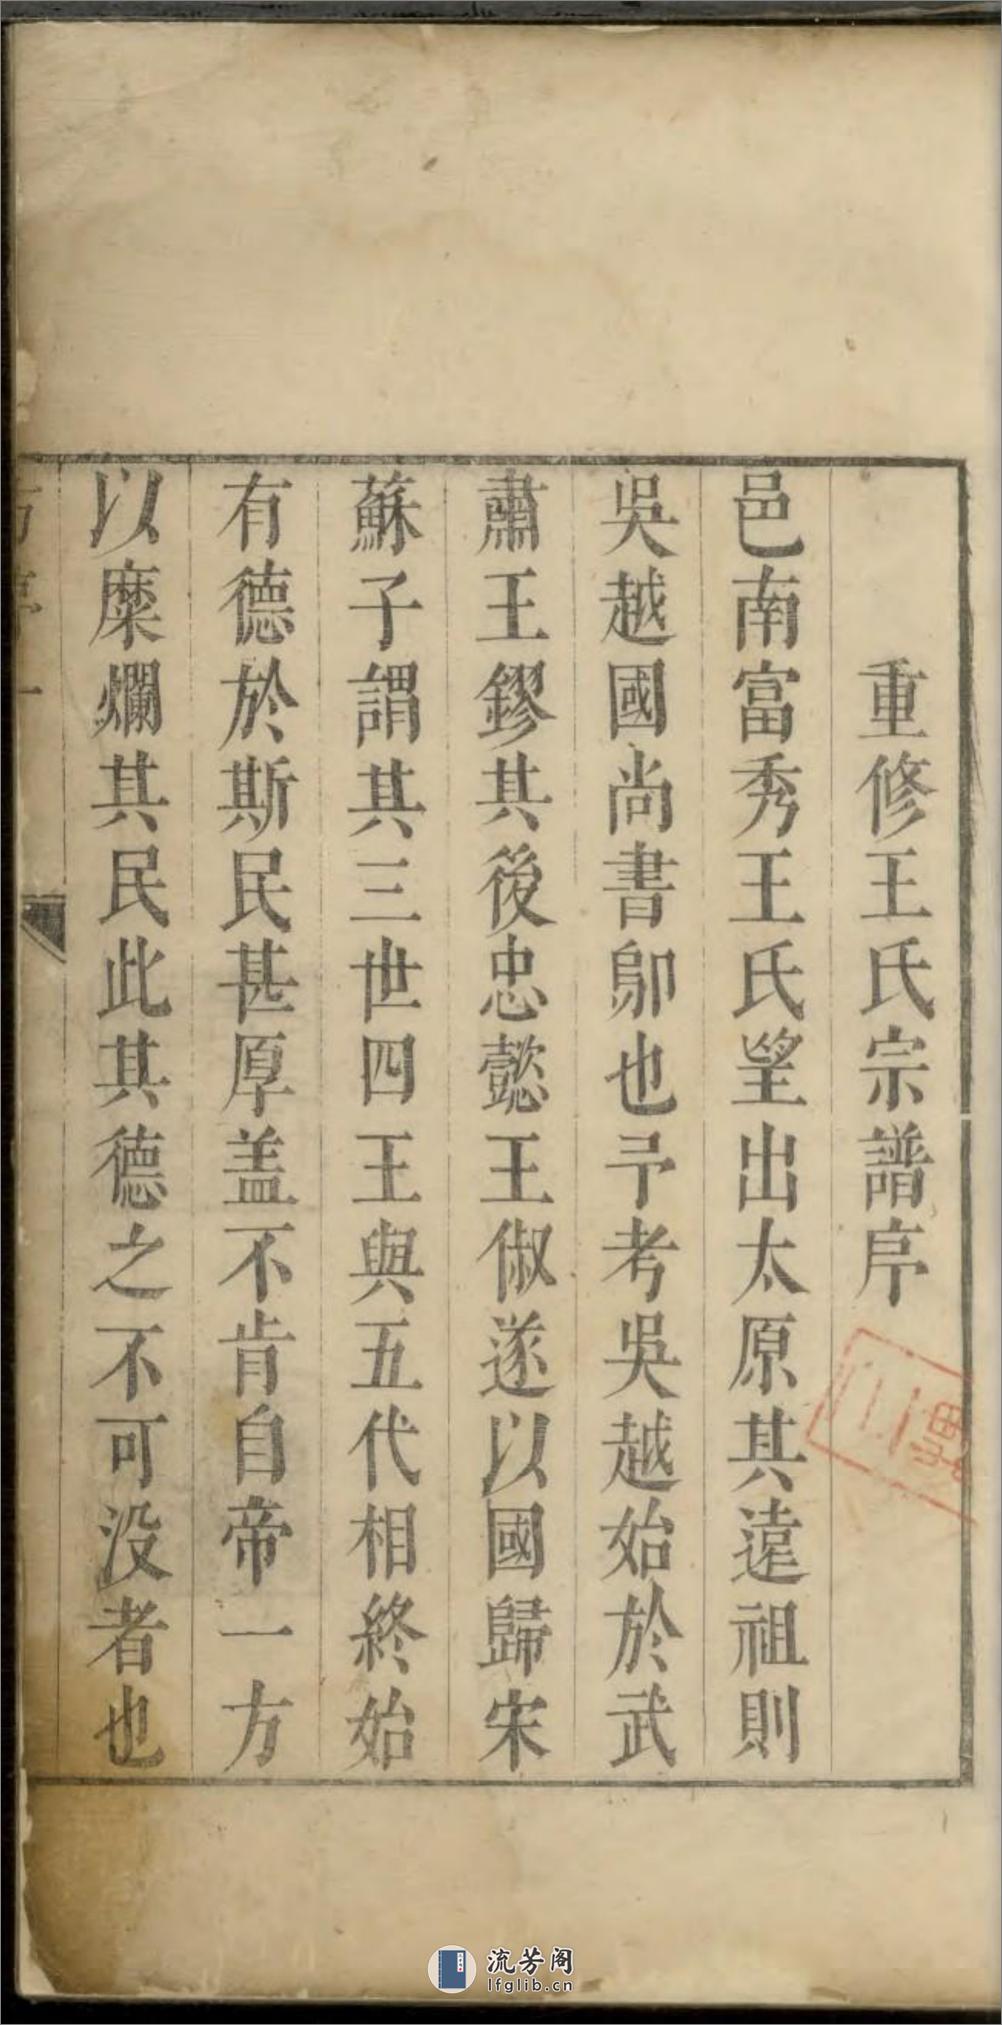 重修王氏宗譜序
邑南富秀王氏望出太原其遠祖則
吳越國尚書鄖也予考吳越始於武
肅王鏐其後忠懿王俶遂以國歸宋
蘇子謂其三世四王與五代相終始
有德於斯民甚厚盖不肯自帝一方
以糜爛其民此其德之不可没者也
流芳阁
lfglib.cn